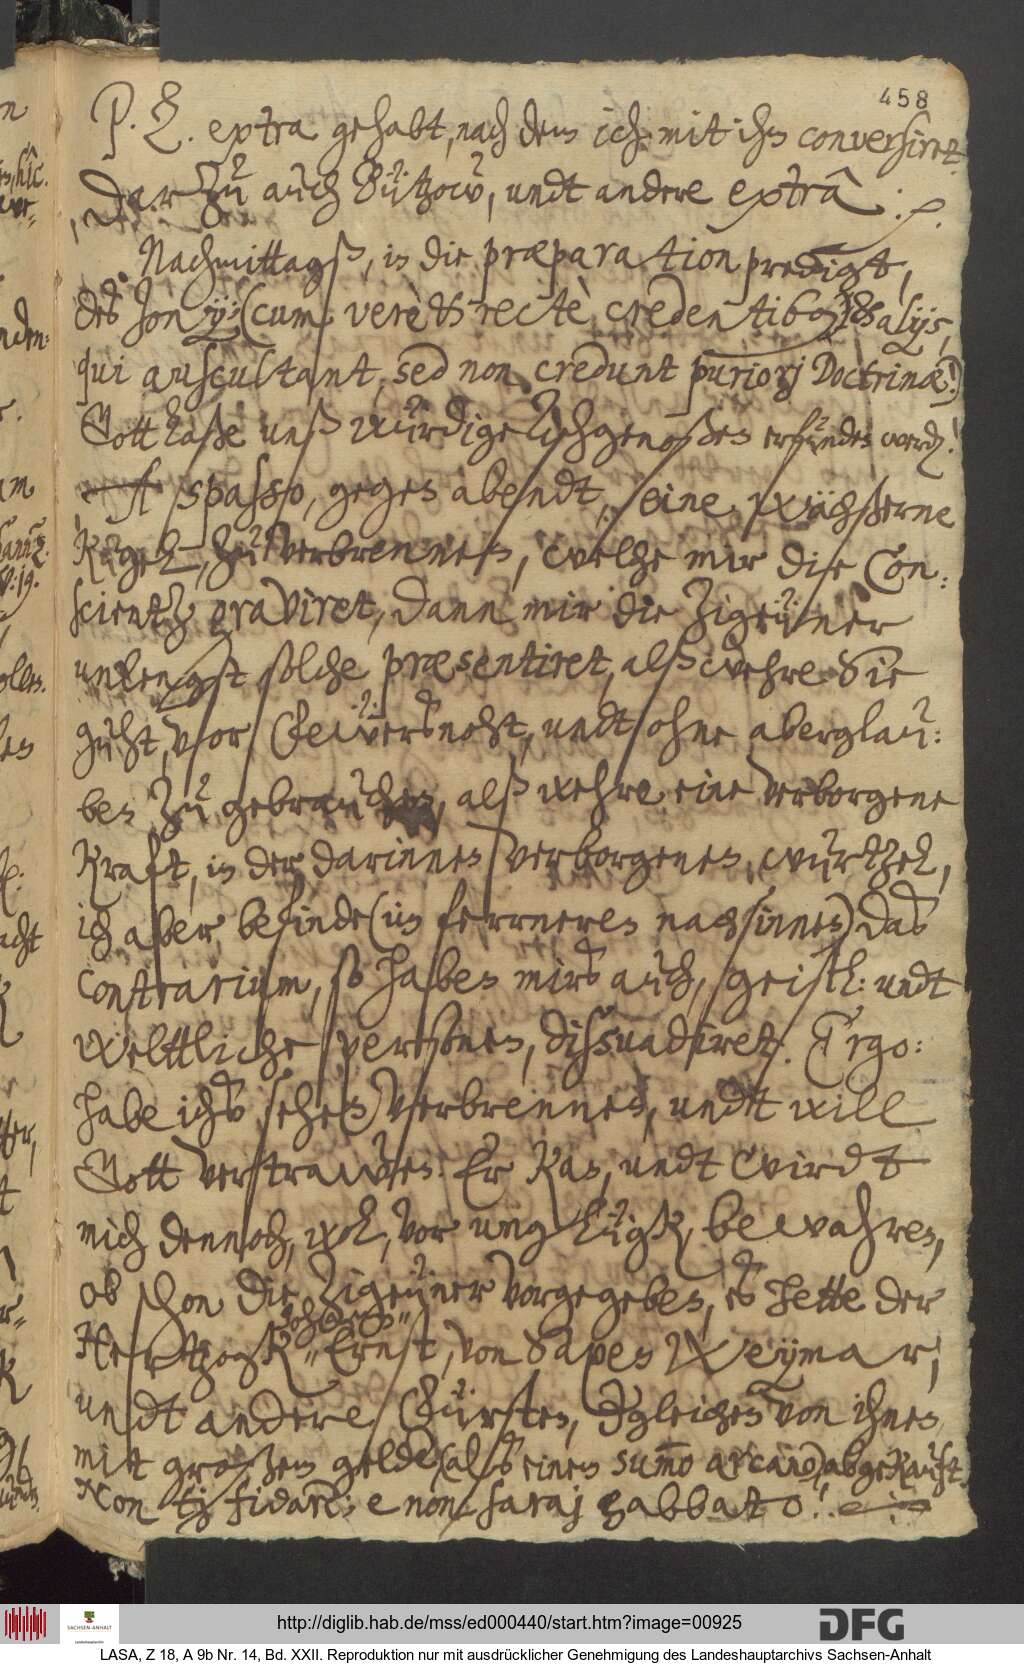 458
P. E. extra gehabt, nach dem ich: mit ihm conversiret.
Darzu auch Bützow, undt andere extrà ./.
Nachmittagß, in die præparation predigt,
des Jonij: (cum verè et rectè credentibus, et alijs,
qui auscultant, sed non credunt puriorj Doctrinæ!)
Gott laße unß würdige Tischgenoßen erfunden werden!
A spasso, gegen abendt, eine wächßerne
Kugel, zu verbrennen, welche mir die Con¬
scientz graviret, dann mir die Zigeüner
unlengst solche præsentiret, alß wehre Sie
guht, vor Feẅersnoht, undt ohne aberglau¬
ben zu gebrauchen, alß wehre eine verborgene
Kraft, in der darinnen verborgenen, wurtzel,
ich aber befinde (im ferrneren nachsinnen) das
Contrarium, so haben mirs auch, geistl: undt
weltliche personen, dissuadiret. Ergo:
habe ichs sehen verbrennen, undt will
Gott vertrawen. Er kan, undt wirdt
mich dennoch, wol, vor unglück, bewahren,
ob schon die Zigeüner vorgegeben, es hette der
Hertzogk Johann Ernst, von Saxen Weymar,
undt andere Fürsten, dergleichen von ihnen
mit großem gelde (alß einen summo arcano) abgekauft.
Non tj fidare; e non saraj gabbato!
http://diglib.hab.de/mss/ed000440/start.htm?image=00925
DFG
SACHSEN-ANHALT
LASA, Z 18, A 9b Nr. 14, Bd. XXII. Reproduktion nur mit ausdrücklicher Genehmigung des Landeshauptarchivs Sachsen-Anhalt